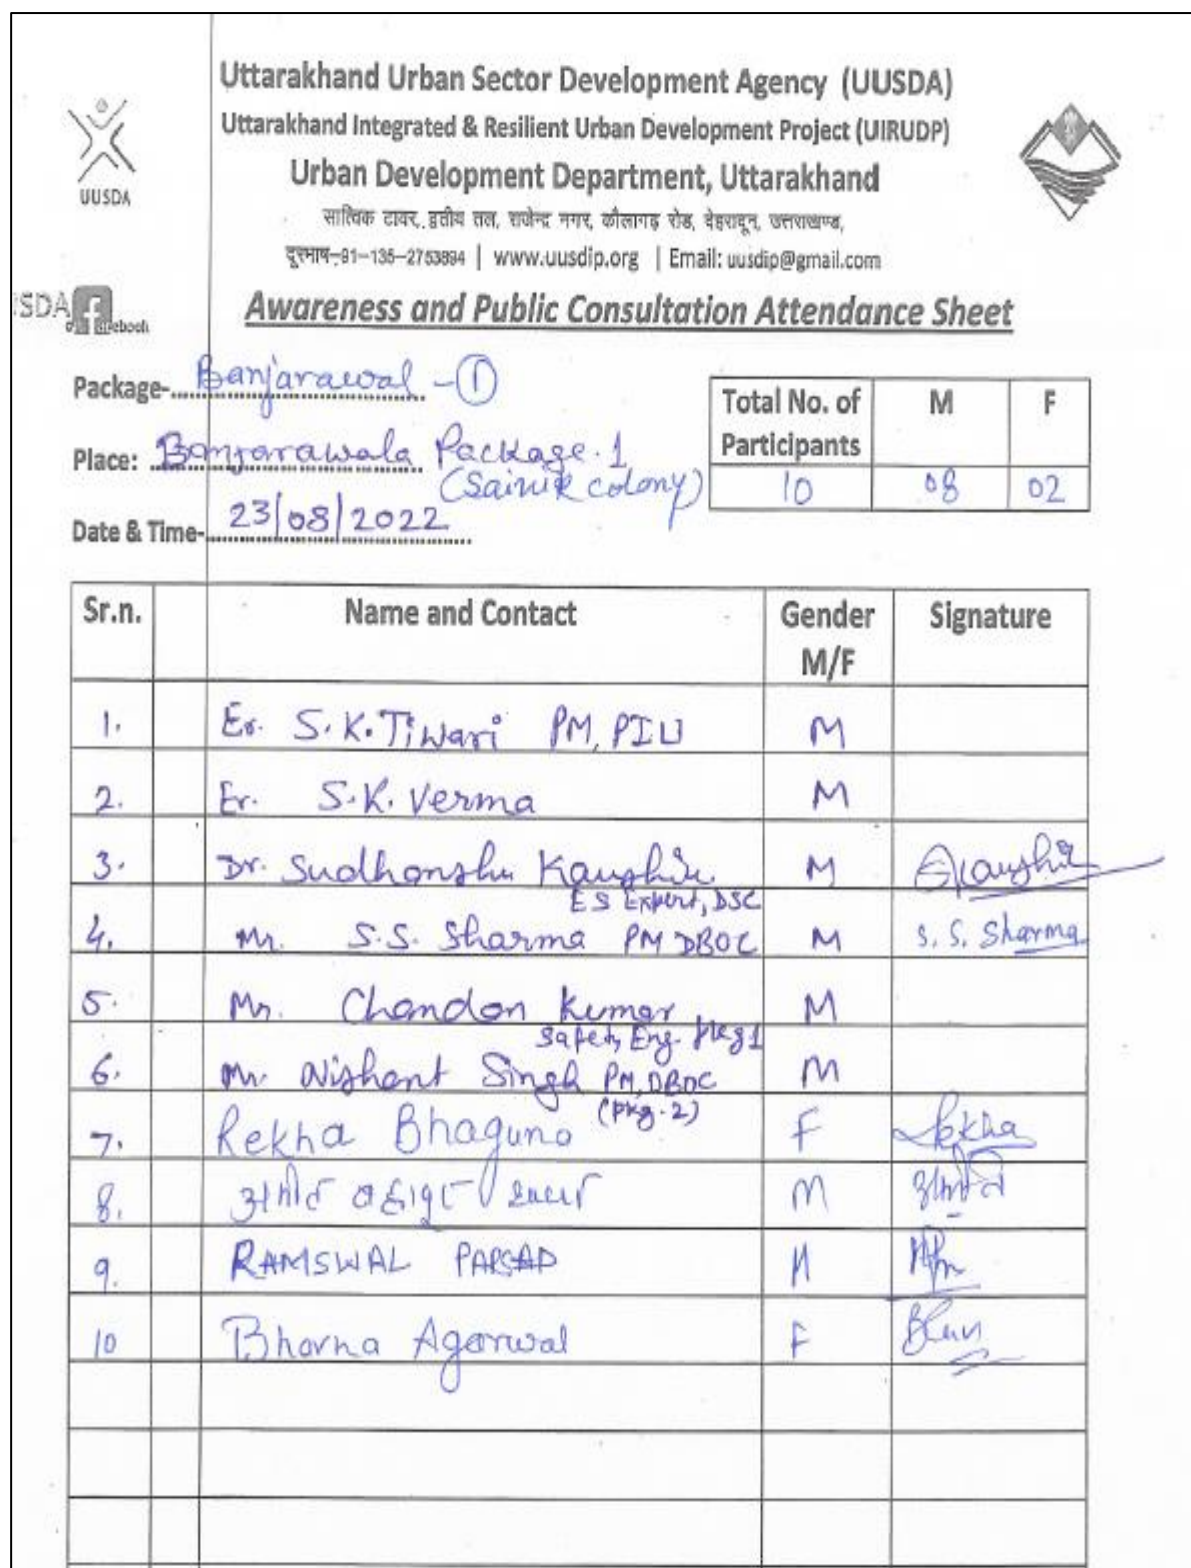 Uttarakhand Urban Sector Development Agency (UUSDA)
Uttarakhand Integrated & Resilient Urban Development Project (UIRUDP)
Urban Development Department, Uttarakhand
UUSDA
सात्विक टावर, द्वतीय तल, राजेन्द्र नगर, कौलागढ़ रोड, देहरादून, उत्तराखण्ड,
दूरभाष-91-135-2753894 | www.uusdip.org | Email: uusdip@gmail.com
USDA
Awareness and Public Consultation Attendance Sheet
Package- Banjarawal - 1
Place: Banjarawala Package.1
(Sainik colony)
Date & Time- 23/08/2022
Total No. of Participants M F
10 08 02
Sr.n. Name and Contact Gender M/F Signature
1. Er. S.K. Tiwari PM, PIU M
2. Er. S.K. Verma M
3. Dr. Sudhanshu Kaushik M
ES Expert, DSC
4. Mr. S.S. Sharma PM DBOC M S. S. Sharma
5. Mr. Chandan Kumar M
Safety Eng. pkg 1
6. Mr. Nishant Singh PM, DBOC M
(pkg.2)
7. Rekha Bhaguna F Rekha
8. M
9. RAMSWAL PARSAD M
10 Bhavna Agarwal F